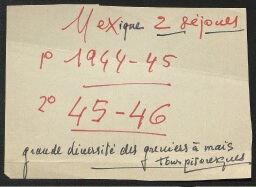 Mexique 2 séjours
1º 1944-45
2º 45-46
grande diversité des greniers à maïs
tous pitoresques